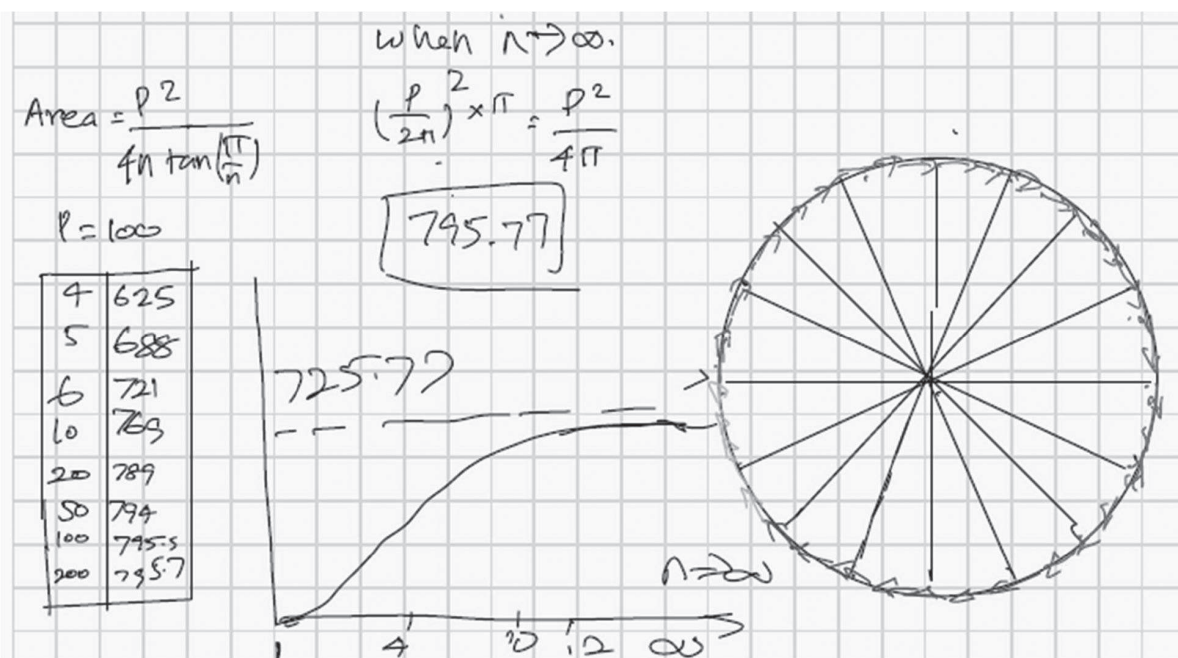 when n→∞.
Area = P² / 4n tan(π/n)
(P/2π)² × π = P²/4π
P = 100
795.77
4 625
5 688
6 721
10 769
20 789
50 794
100 795.5
200 795.7
725.77
n→∞
4 10 12 ∞